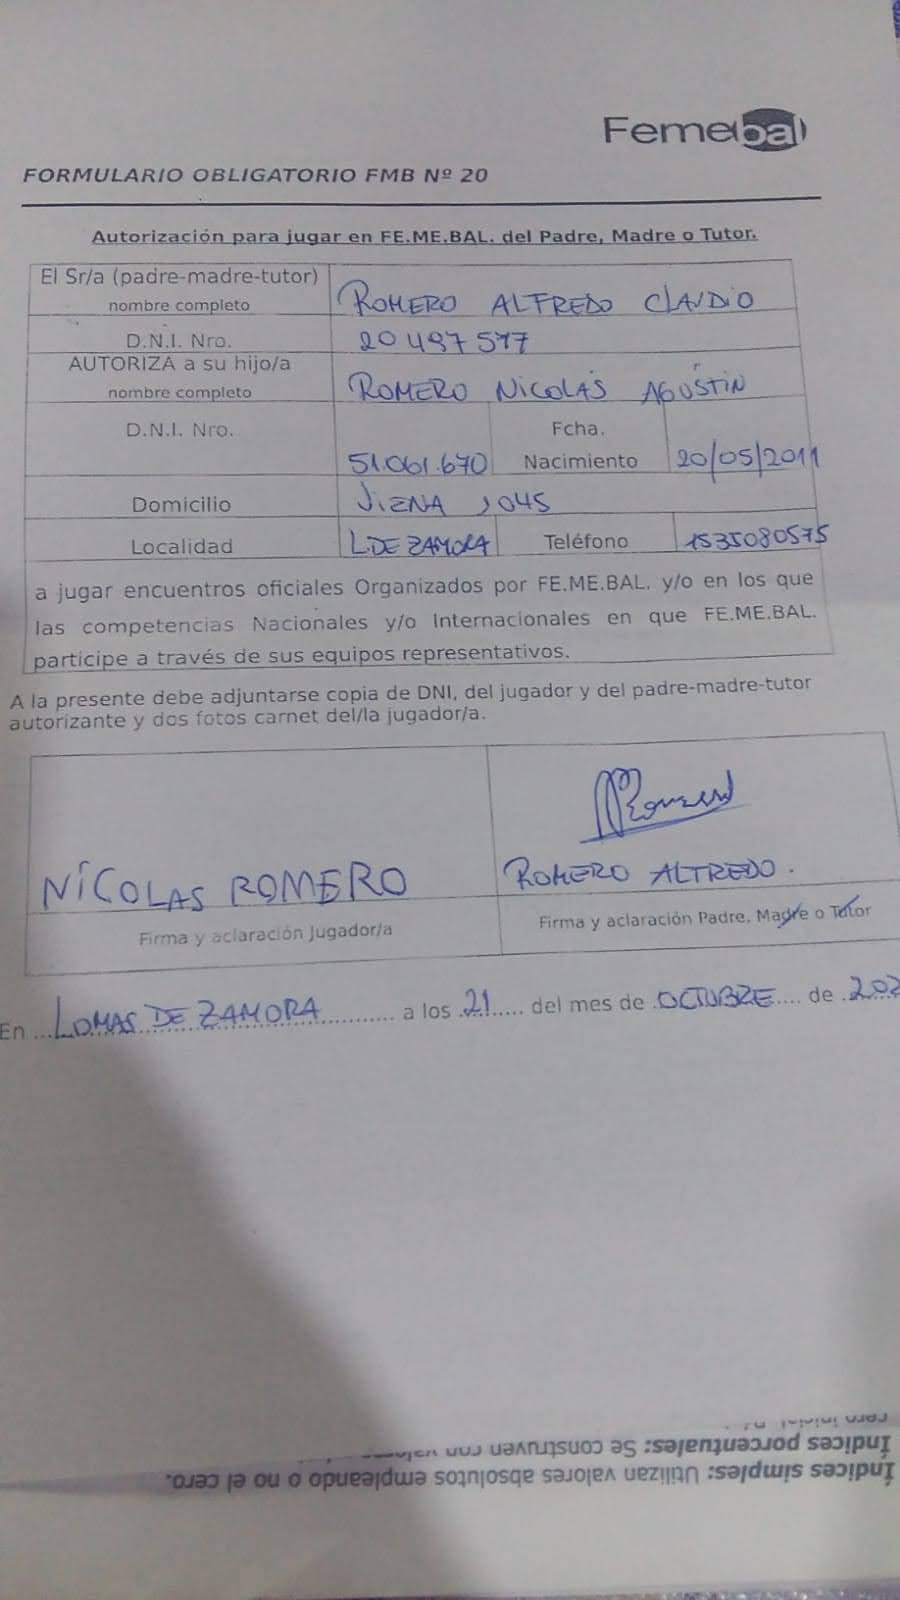 Femebal
FORMULARIO OBLIGATORIO FMB Nº 20
Autorización para jugar en FE.ME.BAL. del Padre, Madre o Tutor.
El Sr/a (padre-madre-tutor)
nombre completo
ROMERO ALFREDO CLAUDIO
D.N.I. Nro.
AUTORIZA a su hijo/a
nombre completo
ROMERO NICOLÁS AGUSTÍN
D.N.I. Nro.
51.061.670
Fcha.
Nacimiento
20/05/2011
Domicilio
VIENA
Localidad
L.DE ZAMORA
Teléfono
1535080575
a jugar encuentros oficiales Organizados por FE.ME.BAL. y/o en los que
las competencias Nacionales y/o Internacionales en que FE.ME.BAL.
participe a través de sus equipos representativos.
A la presente debe adjuntarse copia de DNI, del jugador y del padre-madre-tutor
autorizante y dos fotos carnet del/la jugador/a.
NÍCOLAS ROMERO
Firma y aclaración Jugador/a
Romero
ROMERO ALFREDO.
Firma y aclaración Padre, Madre o Tutor
En ... LOMAS DE ZAMORA ............ a los .21..... del mes de .OCTUBRE.... de .202
Índices porcentuales: Se construyen con
Índices simples: Utilizan valores absolutos empleando o no el cero.